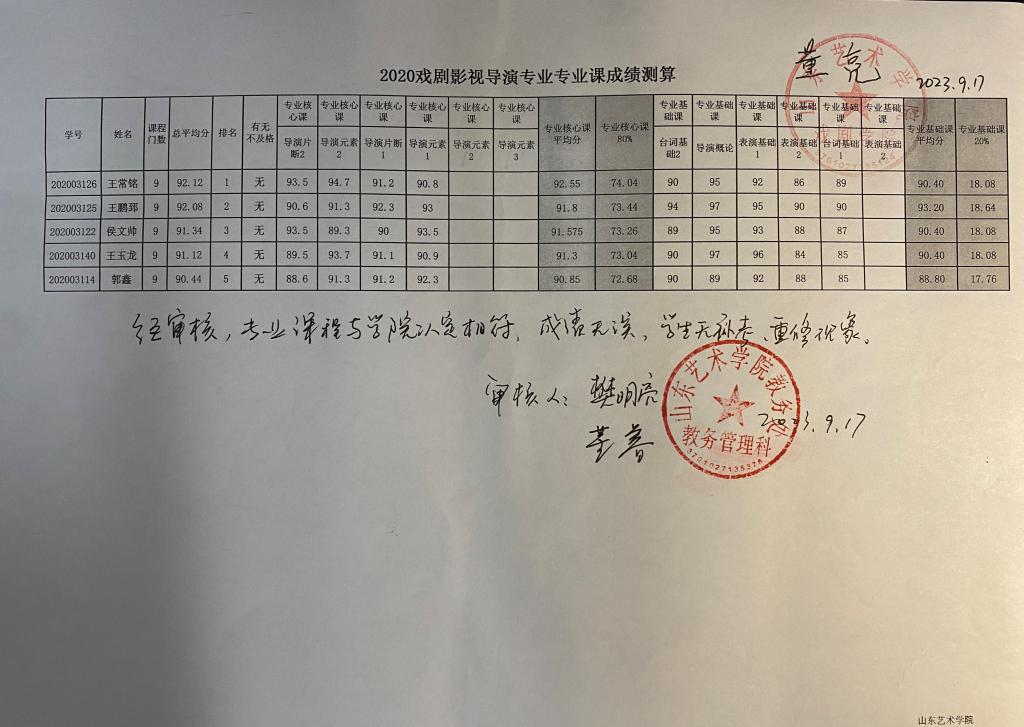 2020戏剧影视导演专业专业课成绩测算
董亮 2023.9.17
学号 姓名 课程门数 总平均分 排名 有无不及格 专业核心课 专业核心课 专业核心课 专业核心课 专业核心课 专业核心课 专业核心课平均分 专业核心课80% 专业基础课 专业基础课 专业基础课 专业基础课 专业基础课 专业基础课 专业基础课平均分 专业基础课20%
导演片断2 导演元素2 导演片断1 导演元素1 导演元素2 导演元素3 台词基础2 导演概论 表演基础1 表演基础2 台词基础1 表演基础2
202003126 王常铭 9 92.12 1 无 93.5 94.7 91.2 90.8 92.55 74.04 90 95 92 86 89 90.40 18.08
202003125 王鹏郅 9 92.08 2 无 90.6 91.3 92.3 93 91.8 73.44 94 97 95 90 90 93.20 18.64
202003122 侯文帅 9 91.34 3 无 93.5 89.3 90 93.5 91.575 73.26 89 95 93 88 87 90.40 18.08
202003140 王玉龙 9 91.12 4 无 89.5 93.7 91.1 90.9 91.3 73.04 90 97 96 84 85 90.40 18.08
202003114 郭鑫 9 90.44 5 无 88.6 91.3 91.2 92.3 90.85 72.68 90 89 92 88 85 88.80 17.76
经审核，专业课程与学院认定相符，成绩无误，学生无补考、重修现象。
审核人：樊明亮
2023.9.17
山东艺术学院教务处
教务管理科
3701027135376
山东艺术学院